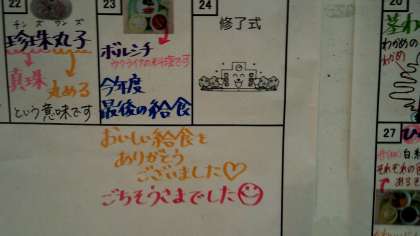 22
チンズワンズ
珍珠丸子
真珠
丸める
という意味です
23
ボルシチ
ウクライナの料理です
今年度
最後の給食
24
修了式
おいしい給食を
ありがとう
ございました♡
ごちそうさまでした☺
わかめの
27
それぞれの